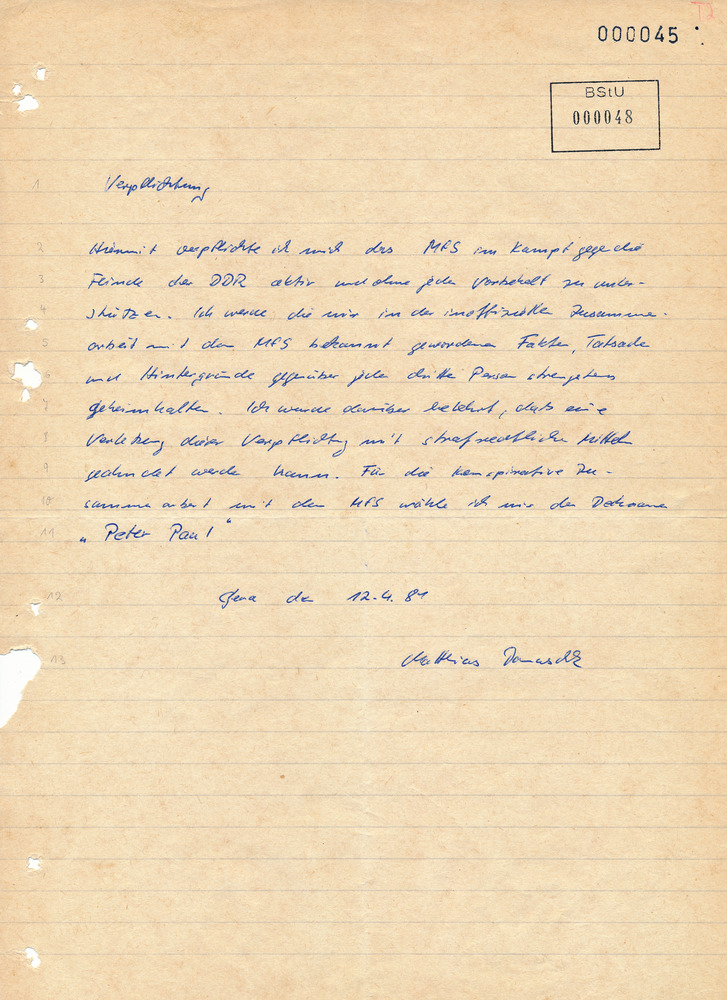 T2
000045
BStU
000048
1 Verpflichtung
2 Hiermit verpflichte ich mich das MfS im Kampf gegen die
3 Feinde der DDR aktiv und ohne jeden Vorbehalt zu unter-
4 stützen. Ich werde die mir in der inoffiziellen Zusammen-
5 arbeit mit dem MfS bekannt gewordenen Fakten, Tatsachen
6 und Hintergründe gegenüber jeder dritten Person strengstens
7 geheimhalten. Ich wurde darüber belehrt, daß eine
8 Verletzung dieser Verpflichtung mit strafrechtlichen Mitteln
9 geahndet werden kann. Für die konspirative Zu-
10 sammenarbeit mit dem MfS wähle ich mir den Decknamen
11 „Peter Paul“
12 Gera den 12.4.81
13 Matthias Domaschk